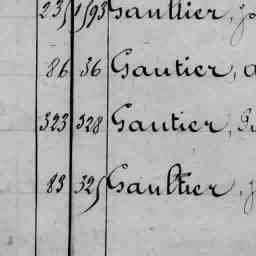 Gaultier,
86 36 Gautier,
323 328 Gautier,
83 325 Gaultier,